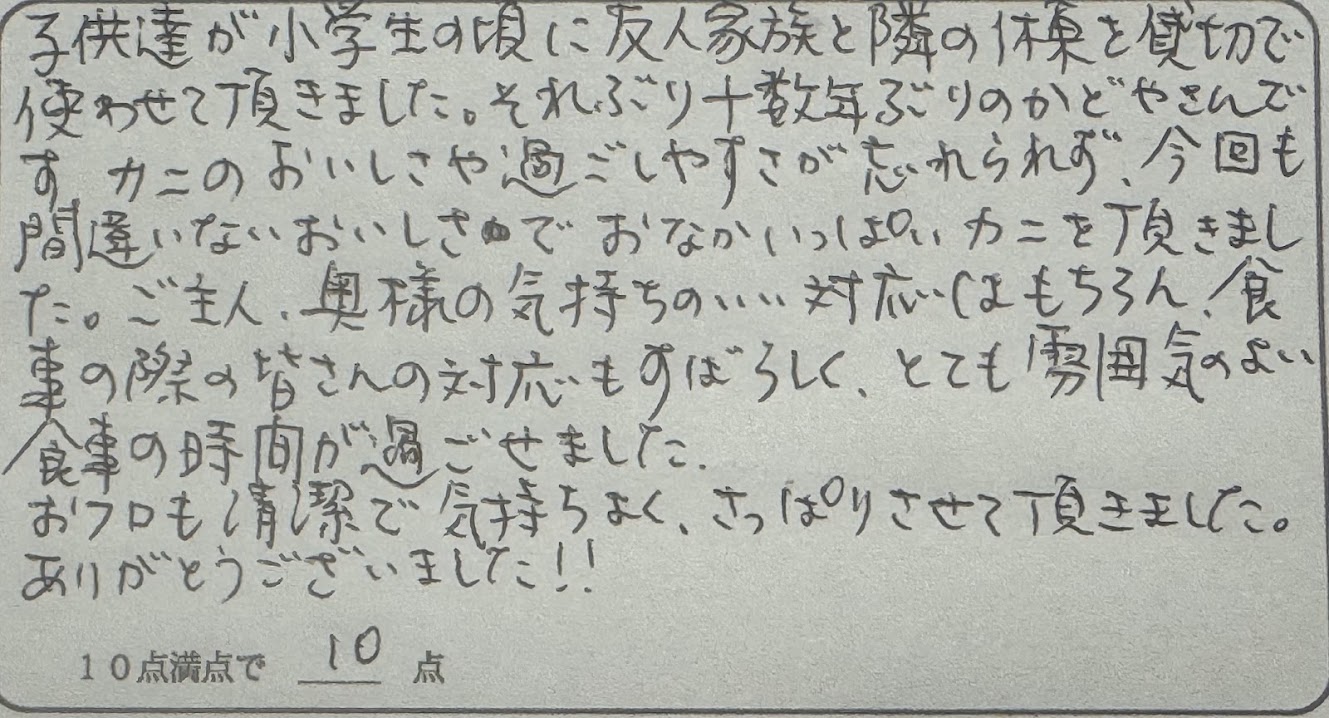 子供達が小学生の頃に友人家族と隣の休東を貸切で
使わせて頂きました。それぶり十数年ぶりのかどやさんで
す カニのおいしさや過ごしやすさが忘れられず、今回も
間違いないおいしさでおなかいっぱいカニを頂きまし
た。ご主人、奥様の気持ちのいい対応はもちろん、食
事の際の皆さんの対応もすばらしく、とても雰囲気のよい
食事の時間が過ごせました.
おフロも清潔で気持ちよく、さっぱりさせて頂きました。
ありがとうございました!!
10点満点で 10 点